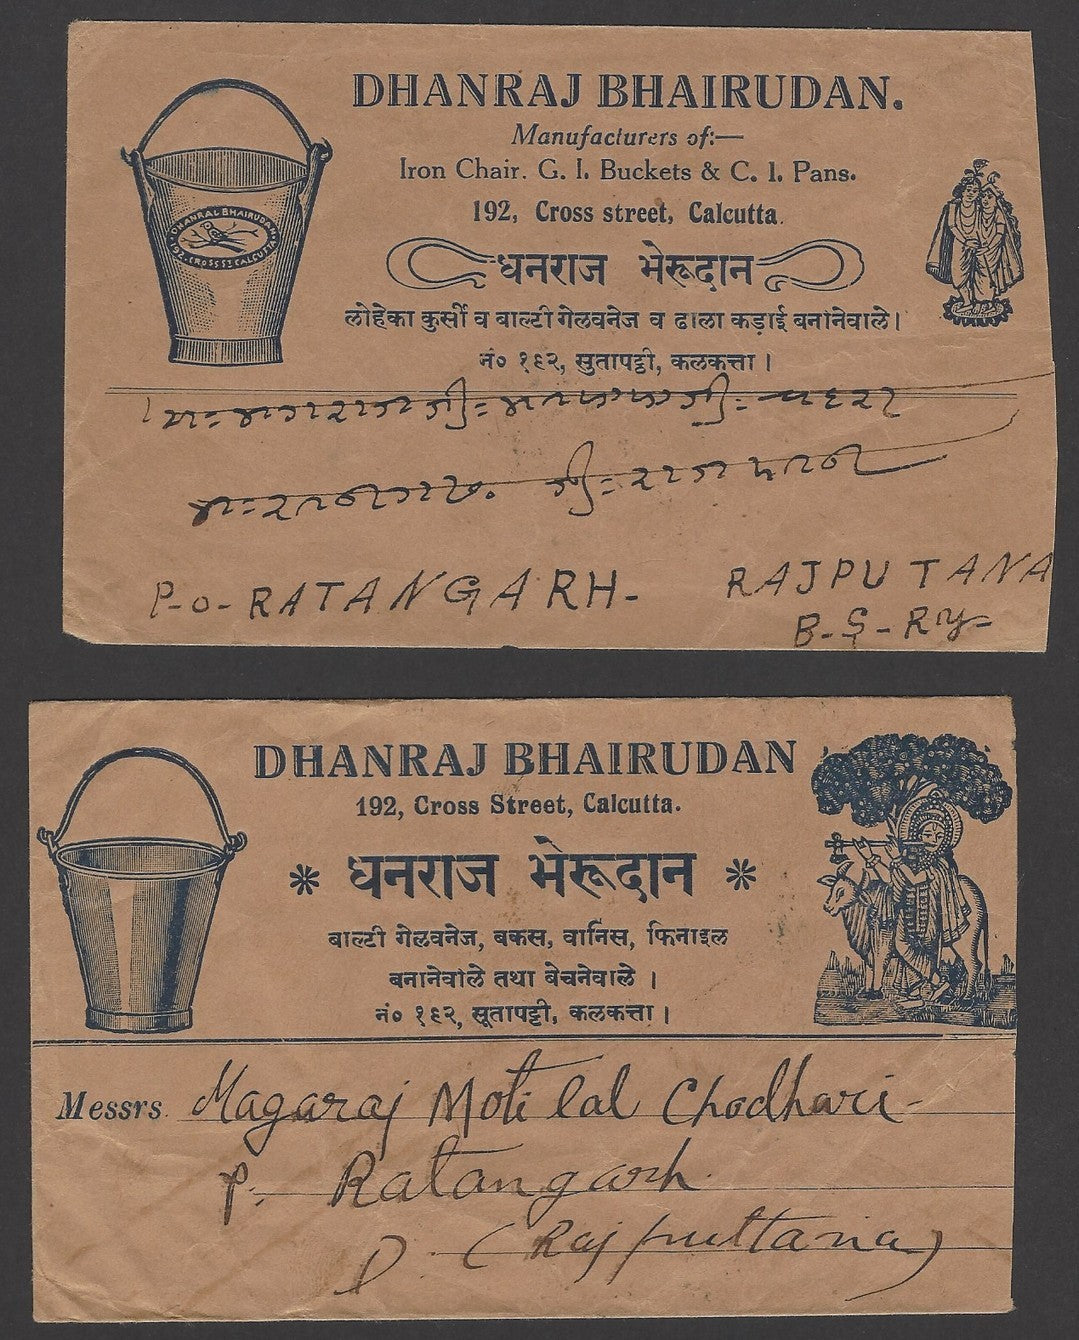 DHANRAJ BHAIRUDAN.
Manufacturers of:—
Iron Chair. G. I. Buckets & C. I. Pans.
192, Cross street, Calcutta.
DHANRAL BHAIRUDAN
192, CROSS ST CALCUTTA
धनराज भेरूदान
लोहेका कुर्सी व बाल्टी गेलवनेज व ढाला कड़ाई बनानेवाले।
नं० १९२, सुतापट्टी, कलकत्ता।
P-O- RATANGARH- RAJPUTANA
B-S-Ry-
DHANRAJ BHAIRUDAN
192, Cross Street, Calcutta.
* धनराज भेरूदान *
बाल्टी गेलवनेज, बकस, वार्निस, फिनाइल
बनानेवाले तथा बेचनेवाले ।
नं० १९२, सूतापट्टी, कलकत्ता।
Messrs Magaraj Motilal Chodhari-
P. Ratangarh.
D. (Rajputtana)